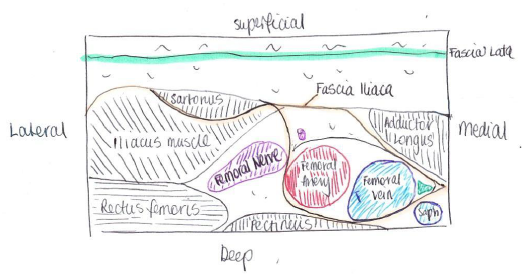 superficial
Fascia Lata
Fascia Iliaca
Sartorius
Lateral
Iliacus muscle
Adductor
Longus
Medial
Femoral Nerve
Femoral
Artery
Femoral
vein
Rectus femoris
Saph
Pectineus
Deep